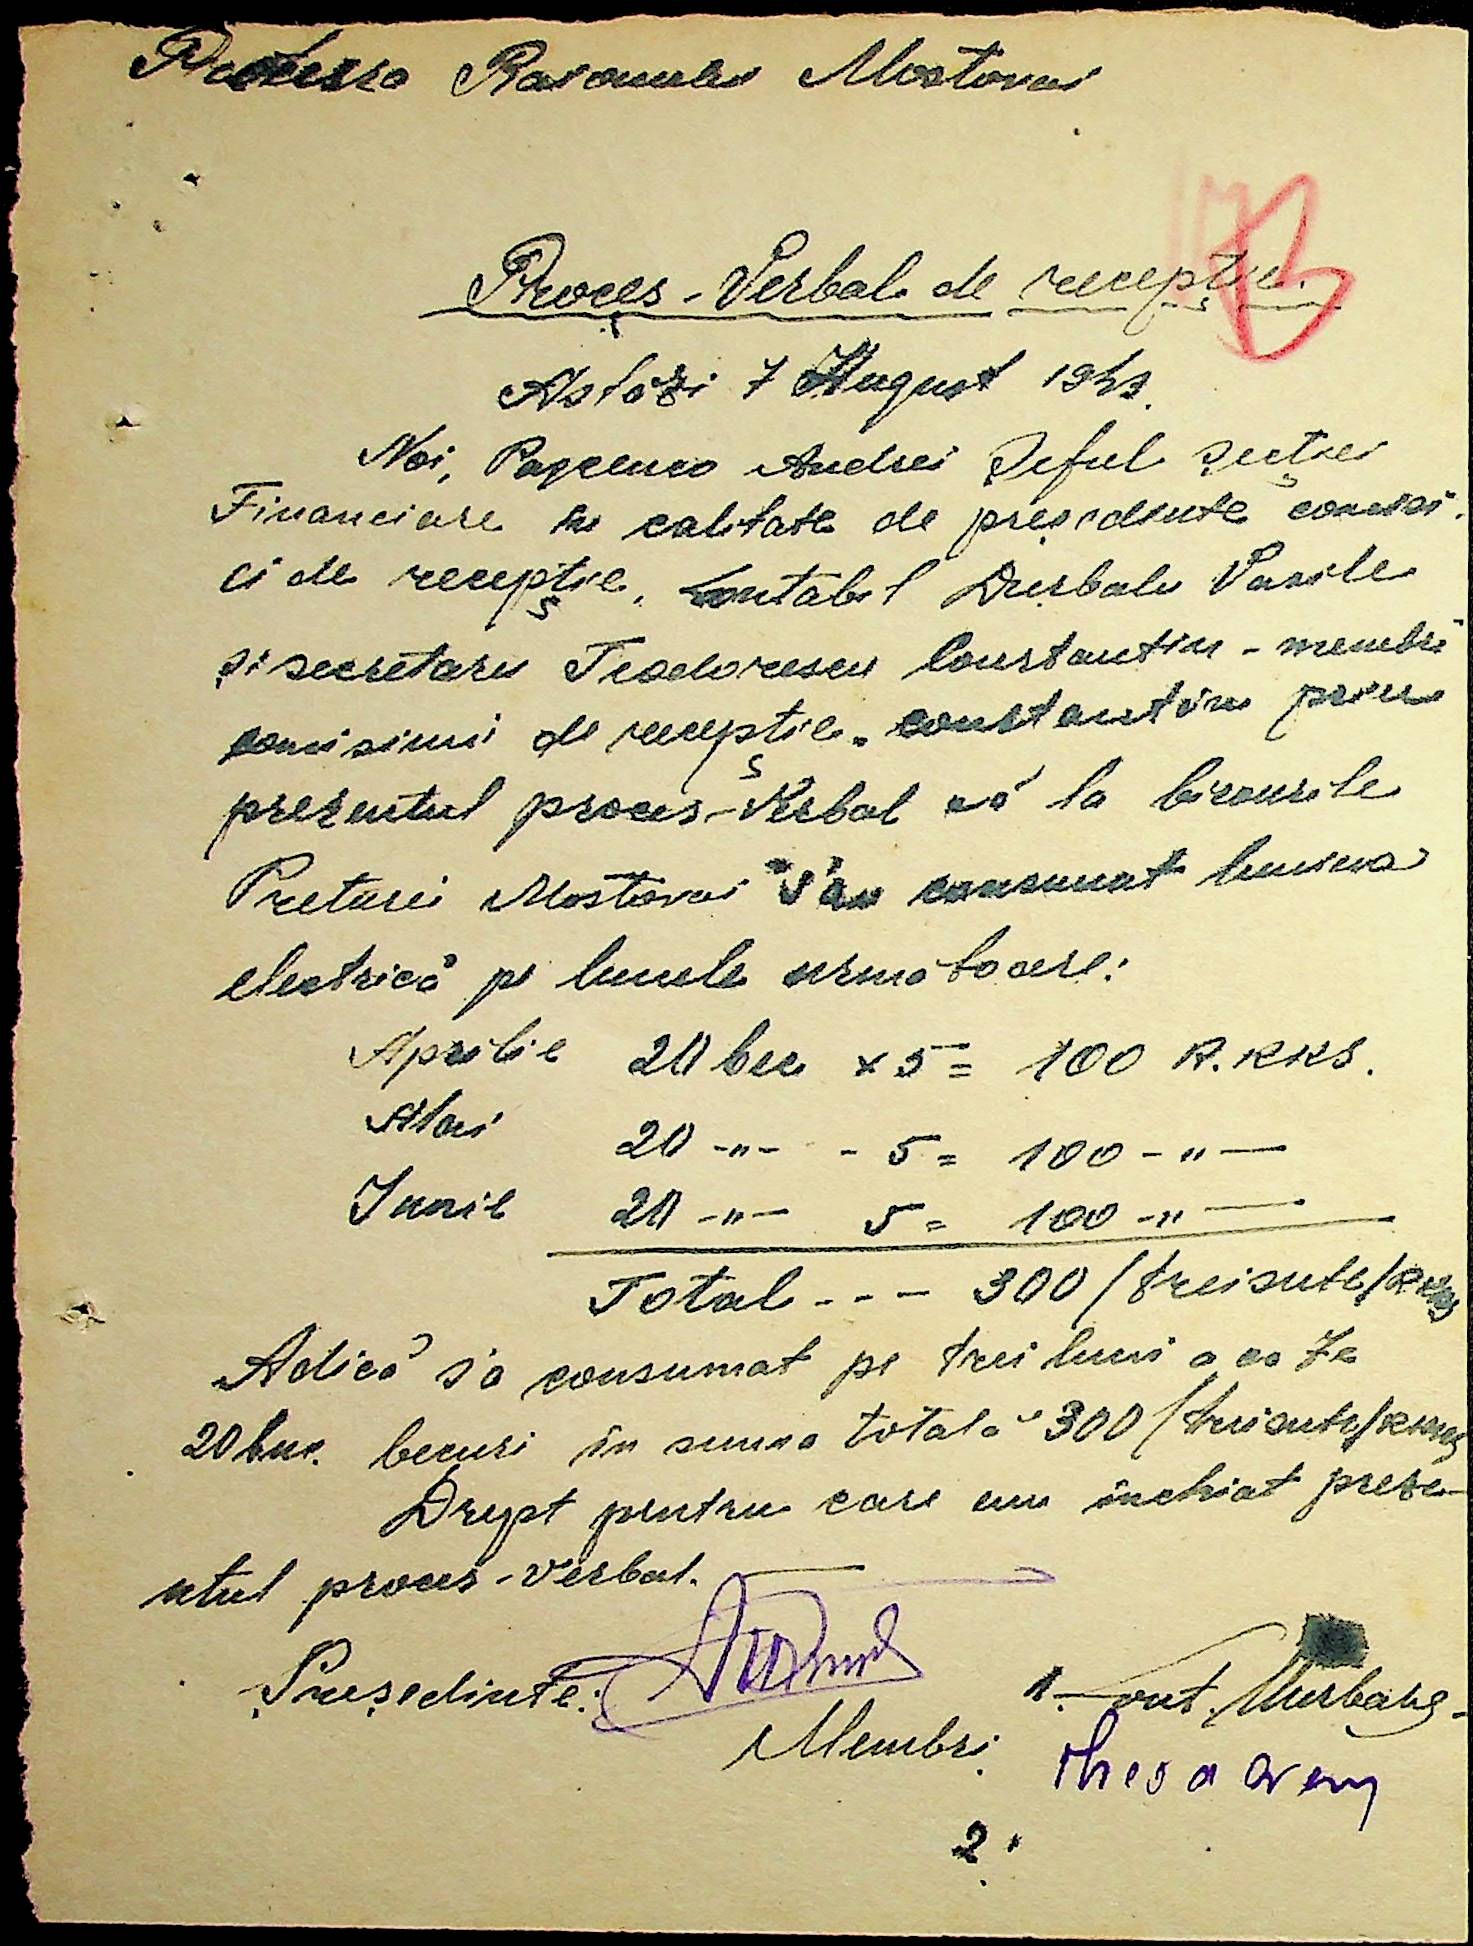 Pretura Raionului Mostovoi
Proces-Verbal de recepție.
Astăzi 7 August 1943.
Noi, Andrei Șeful secției
Financiare în calitate de președinte comisi-
ei de recepție, Contabil Vasile
și secretaru Teodorescu Constantin - membri
comisiunii de recepție. constantăm prin
prezentul proces-Verbal că la birourile
Preturei Mostovoi s'au consumat lumina
electrică pe lunele următoare:
Aprilie 20 bec x 5 = 100 R.KKS.
Mai 20 -"- - 5 = 100 -"-
Iunie 20 -"- 5 = 100 -"-
Total --- 300 /treisute/
Adică s'a consumat pe trei luni a câte
20 buc. becuri în suma totală 300 /treisute/
Drept pentru care am închiat preze-
ntul proces-verbal.
Președinte:
Membri:
1. cont.
2.